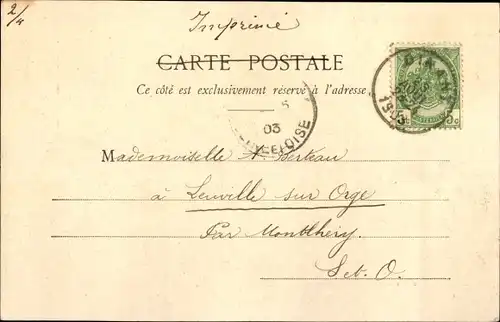 2/4
Imprimé
CARTE POSTALE
Ce côté est exclusivement réservé à l'adresse.
DINANT
1903
5c
03
Mademoiselle A. Berteau
à Leuville sur Orge
Par Montlhéry
S. et. O.